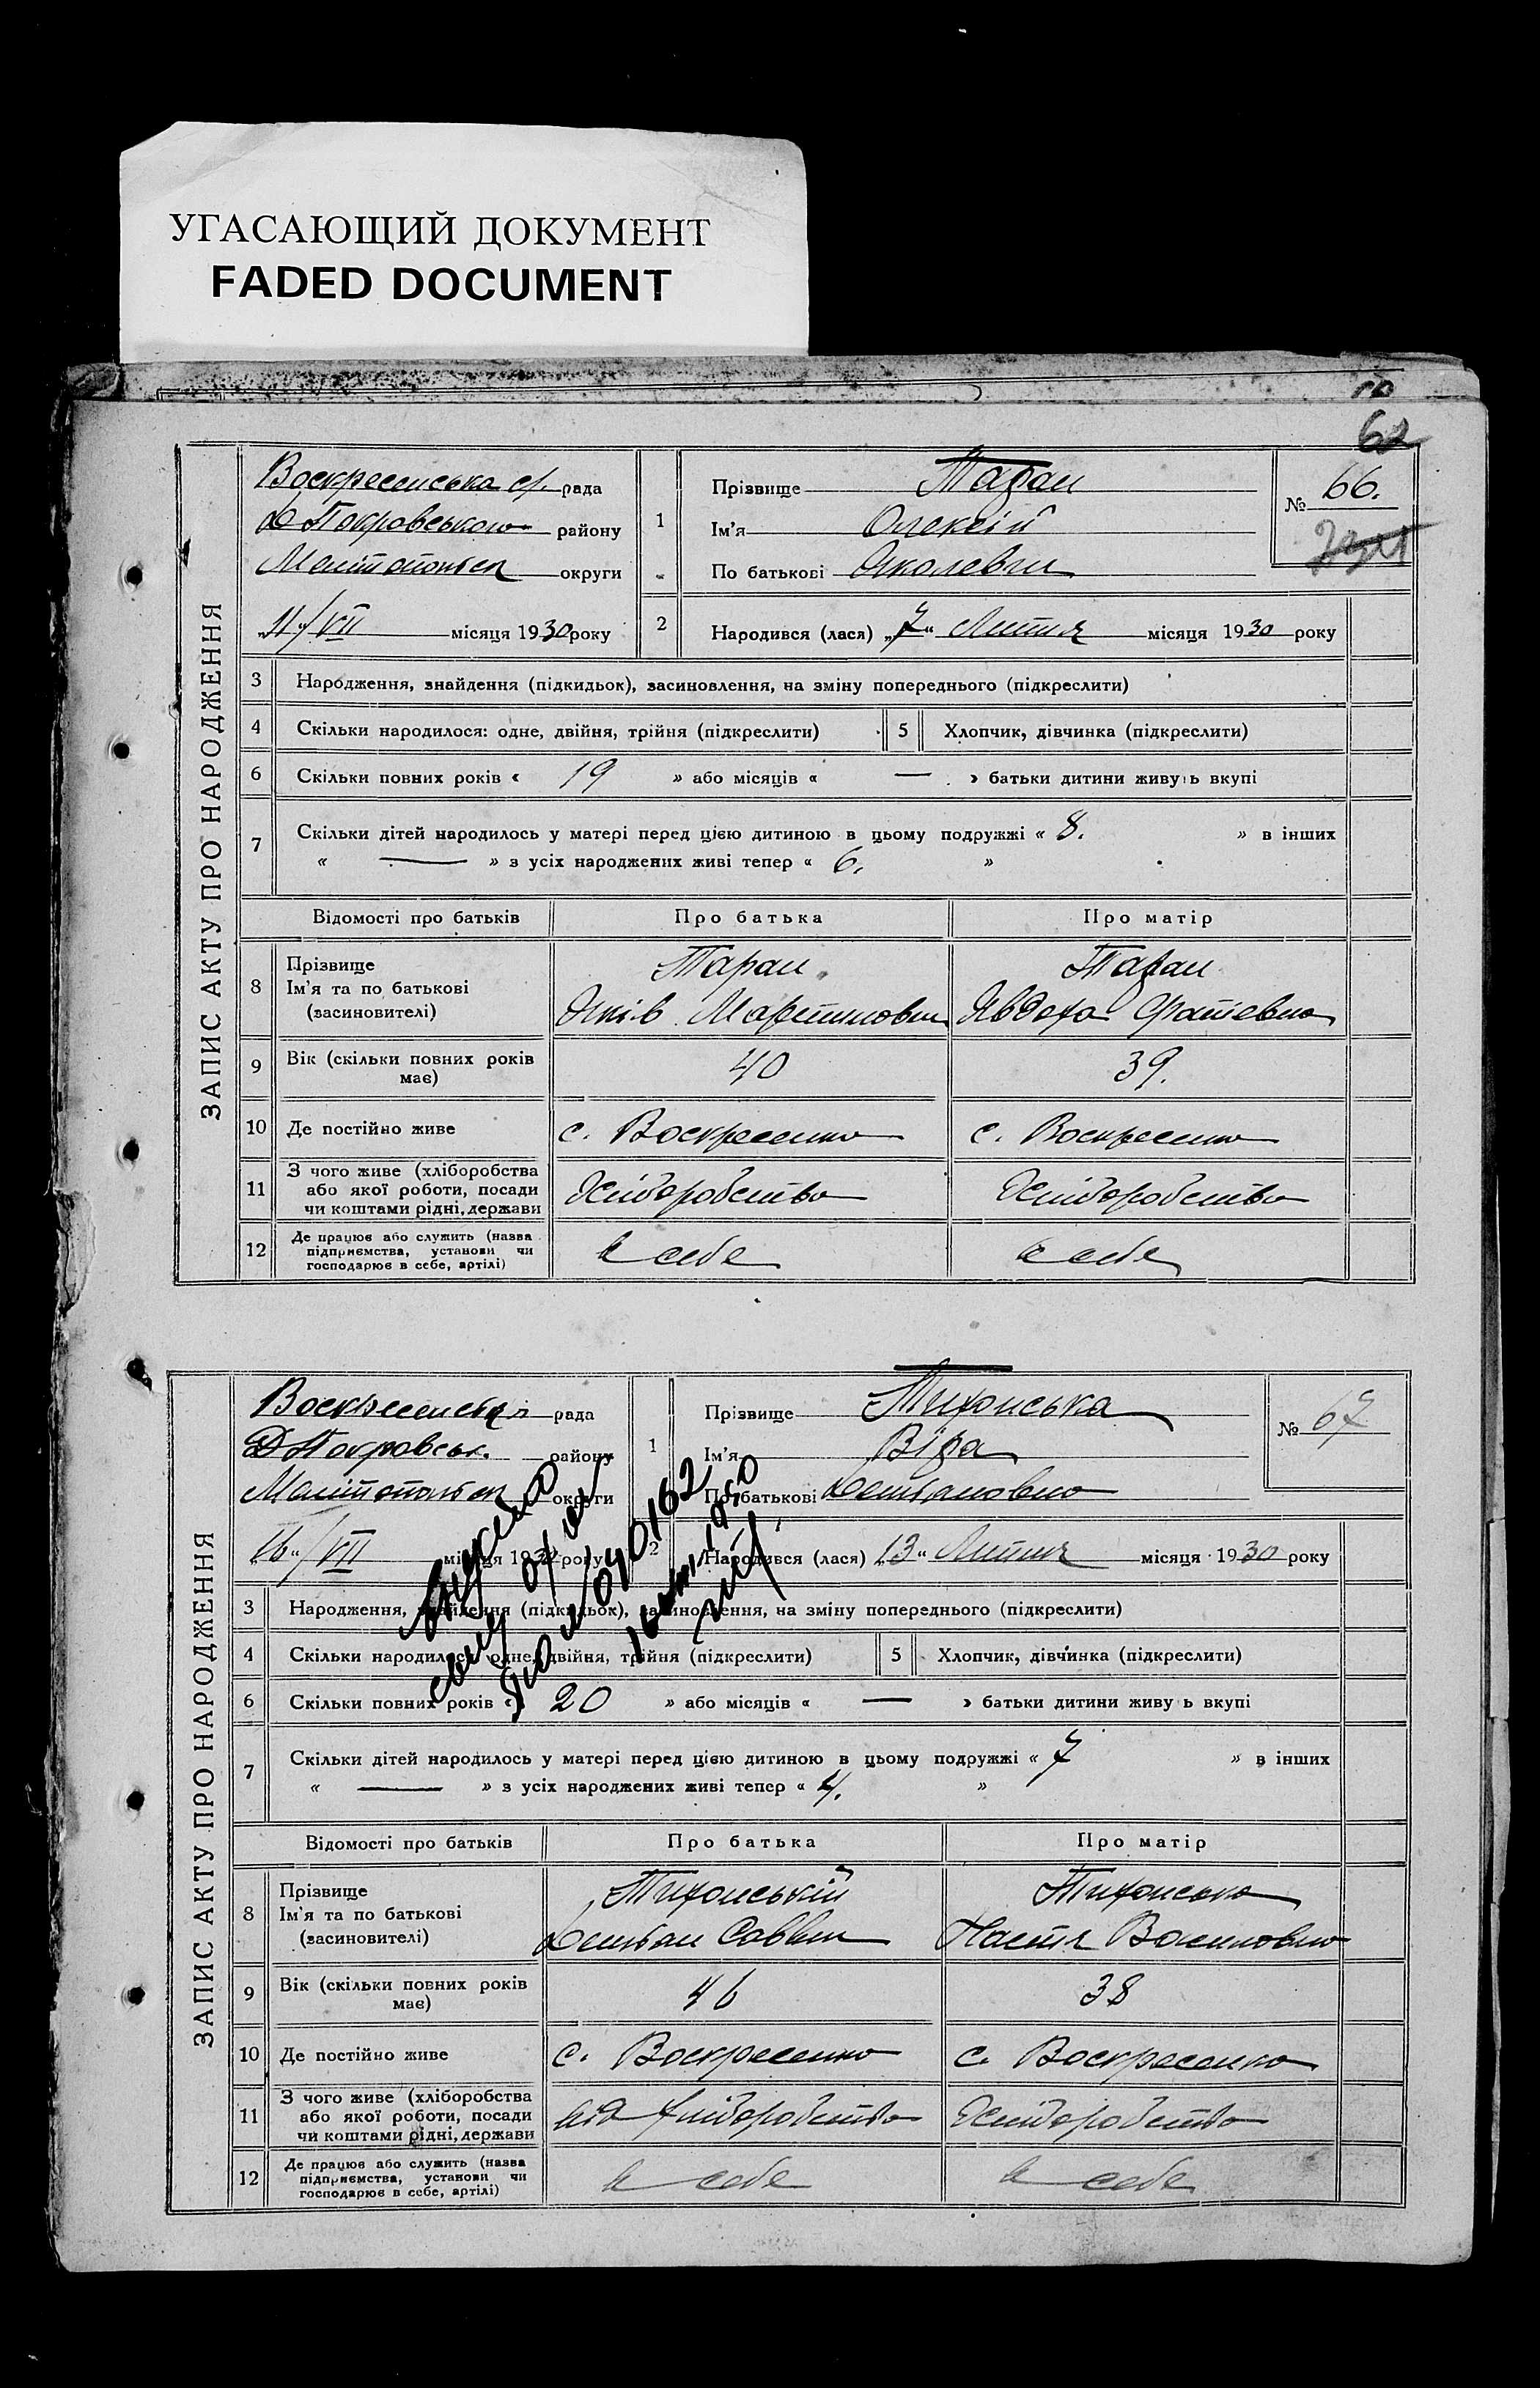 УГАСАЮЩИЙ ДОКУМЕНТ
FADED DOCUMENT
62
ЗАПИС АКТУ ПРО НАРОДЖЕННЯ
Воскресенська с/. рада
Д Покровського району
Мелітопольськ округи
„11“/VII місяця 1930 року
1
Прізвище Таран
Ім'я Олексій
По батькові Яколевич
№ 66.
2
Народився (лася) „7“ Липня місяця 1930 року
3 Народження, знайдення (підкидьок), засиновлення, на зміну попереднього (підкреслити)
4 Скільки народилося: одне, двійня, трійня (підкреслити) 5 Хлопчик, дівчинка (підкреслити)
6 Скільки повних років « 19 » або місяців « — » батьки дитини живуть вкупі
7 Скільки дітей народилось у матері перед цією дитиною в цьому подружжі « 8. » в інших
« — » з усіх народжених живі тепер « 6. »
Відомості про батьків Про батька Про матір
8 Прізвище Таран Таран
Ім'я та по батькові Яків Мартинович Явдоха Фатевна
(засиновителі)
9 Вік (скільки повних років має) 40 39.
10 Де постійно живе с. Воскресенка с. Воскресенка
11 З чого живе (хліборобства Хліборобство Хліборобство
або якої роботи, посади
чи коштами рідні, держави
12 Де працює або служить (назва у себе у себе
підприємства, установи чи
господарює в себе, артілі)
ЗАПИС АКТУ ПРО НАРОДЖЕННЯ
Воскресенська рада
Д Покровськ. району
Мелітопольськ округи
„16“/VII місяця 1930 року
1
Прізвище Тихонська
Ім'я Віра
По батькові Демьяновна
№ 67
2
Народився (лася) „13“ Липня місяця 1930 року
3 Народження, знайдення (підкидьок), засиновлення, на зміну попереднього (підкреслити)
4 Скільки народилося: одне, двійня, трійня (підкреслити) 5 Хлопчик, дівчинка (підкреслити)
6 Скільки повних років « 20 » або місяців « — » батьки дитини живу ь вкупі
7 Скільки дітей народилось у матері перед цією дитиною в цьому подружжі « 7 » в інших
« — » з усіх народжених живі тепер « 4. »
Відомості про батьків Про батька Про матір
8 Прізвище Тихонський Тихонська
Ім'я та по батькові Демьян Саввич Настя Василовна
(засиновителі)
9 Вік (скільки повних років має) 46 38
10 Де постійно живе с. Воскресенка с. Воскресенка
11 З чого живе (хліборобства від хліборобства Хліборобство
або якої роботи, посади
чи коштами рідні, держави
12 Де працює або служить (назва у себе у себе
підприємства, установи чи
господарює в себе, артілі)